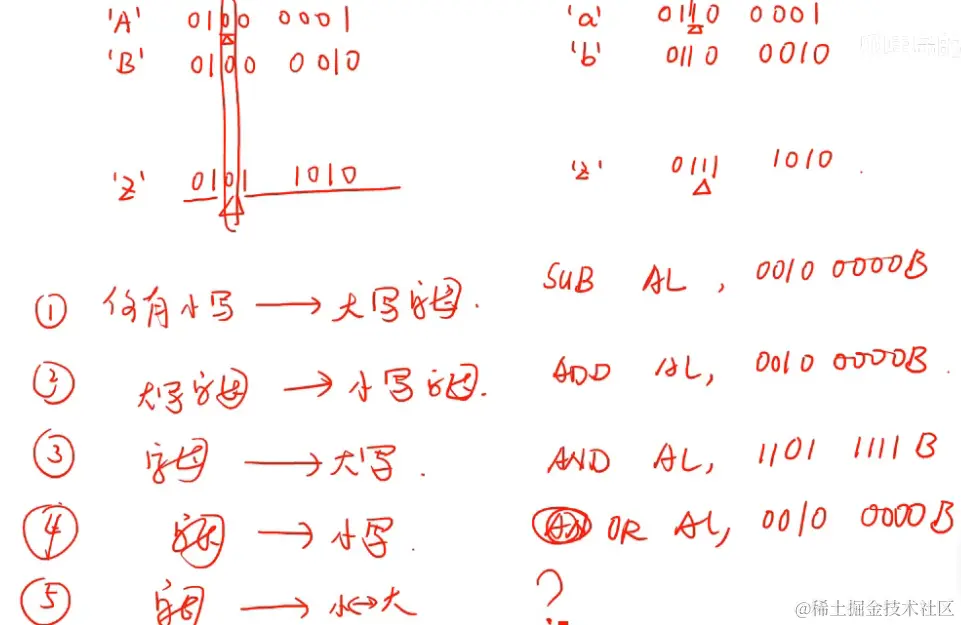 'A' 0100 0001 'a' 0110 0001
'B' 0100 0010 'b' 0110 0010
'Z' 0101 1010 'z' 0111 1010 .
① 仅有小写 → 大写字母. SUB AL , 0010 0000B
② 大写字母 → 小写字母. ADD AL, 0010 0000B .
③ 字母 → 大写. AND AL, 1101 1111 B
④ 字母 → 小写. OR AL, 0010 0000B
⑤ 字母 → 小↔大 ?
@稀土掘金技术社区